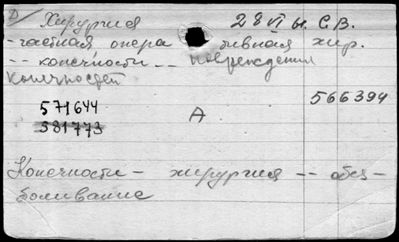 D/ Хирургия 28 VI ы. С.В.
-частная, опера тивная хир.
-- конечности -- повреждения
конечностей
566394
571644
581773
А
Конечности - хирургия -- обез-
боливание